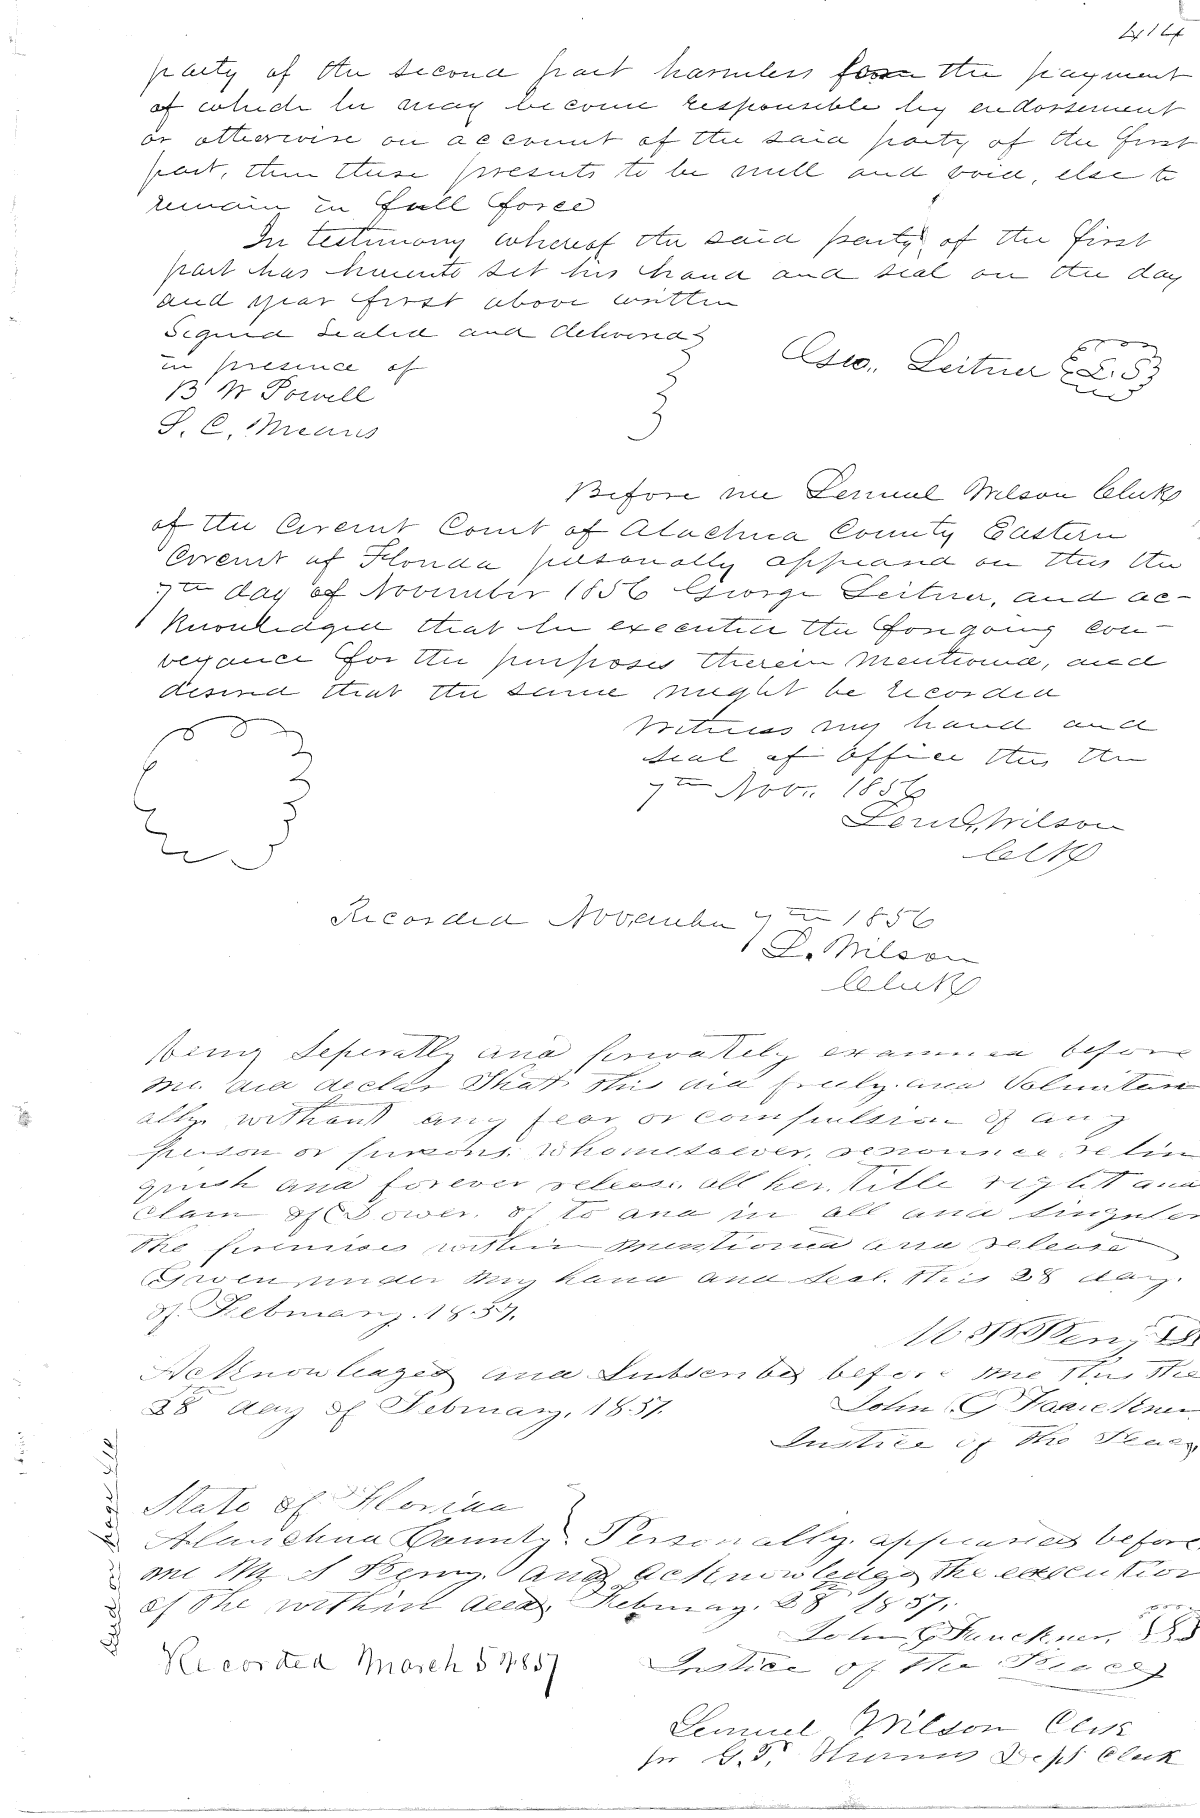 414
party of the second part harmless from the payment
of which he may become responsible by endorsement
or otherwise on account of the said party of the first
part, then these presents to be null and void, else to
remain in full force
In testimony whereof the said party of the first
part has hereunto set his hand and seal on the day
and year first above written
Signed Sealed and delivered
in presence of
Geo. Leitner L.S
B W Powell
S. C. Means
Before me Lemuel Wilson Clerk
of the Circuit Court of Alachua County Eastern
Circuit of Florida personally appeared on this the
7th day of November 1856 George Leitner, and ac-
knowledged that he executed the foregoing con-
veyance for the purposes therein mentioned, and
desired that the same might be recorded
Witness my hand and
seal of office this the
7th Nov. 1856
Leml. Wilson
Clk
Recorded November 7th 1856
L. Wilson
Clerk
being Seperatly and privately examined before
me. did declar That this did freely and Voluntar
ally. without any fear or compulsion of any
person or persons. whomesoever. renounce. relin
quish and forever release. all her. title right and
claim of Dower. of to and in all and singular
the premises within mentioned and release
Given under my hand and Seal. this 28 day.
of February. 1857.
M S Perry LS
Acknowleaged and Subscribed before me this the
28th day of February. 1857.
John G Fauckner
Justice of the Peace
State of Florida
Alauchua County. Personally. appeared before
me M S Perry. and acknowledge the execution
of the within deed. February. 28th 1857.
John G Fauckner. LS
Justice of the Peace
Recorded March 5th 1857
Lemuel Wilson Clerk
pr G. T. Thomas Dept Clerk
Deed on page 410